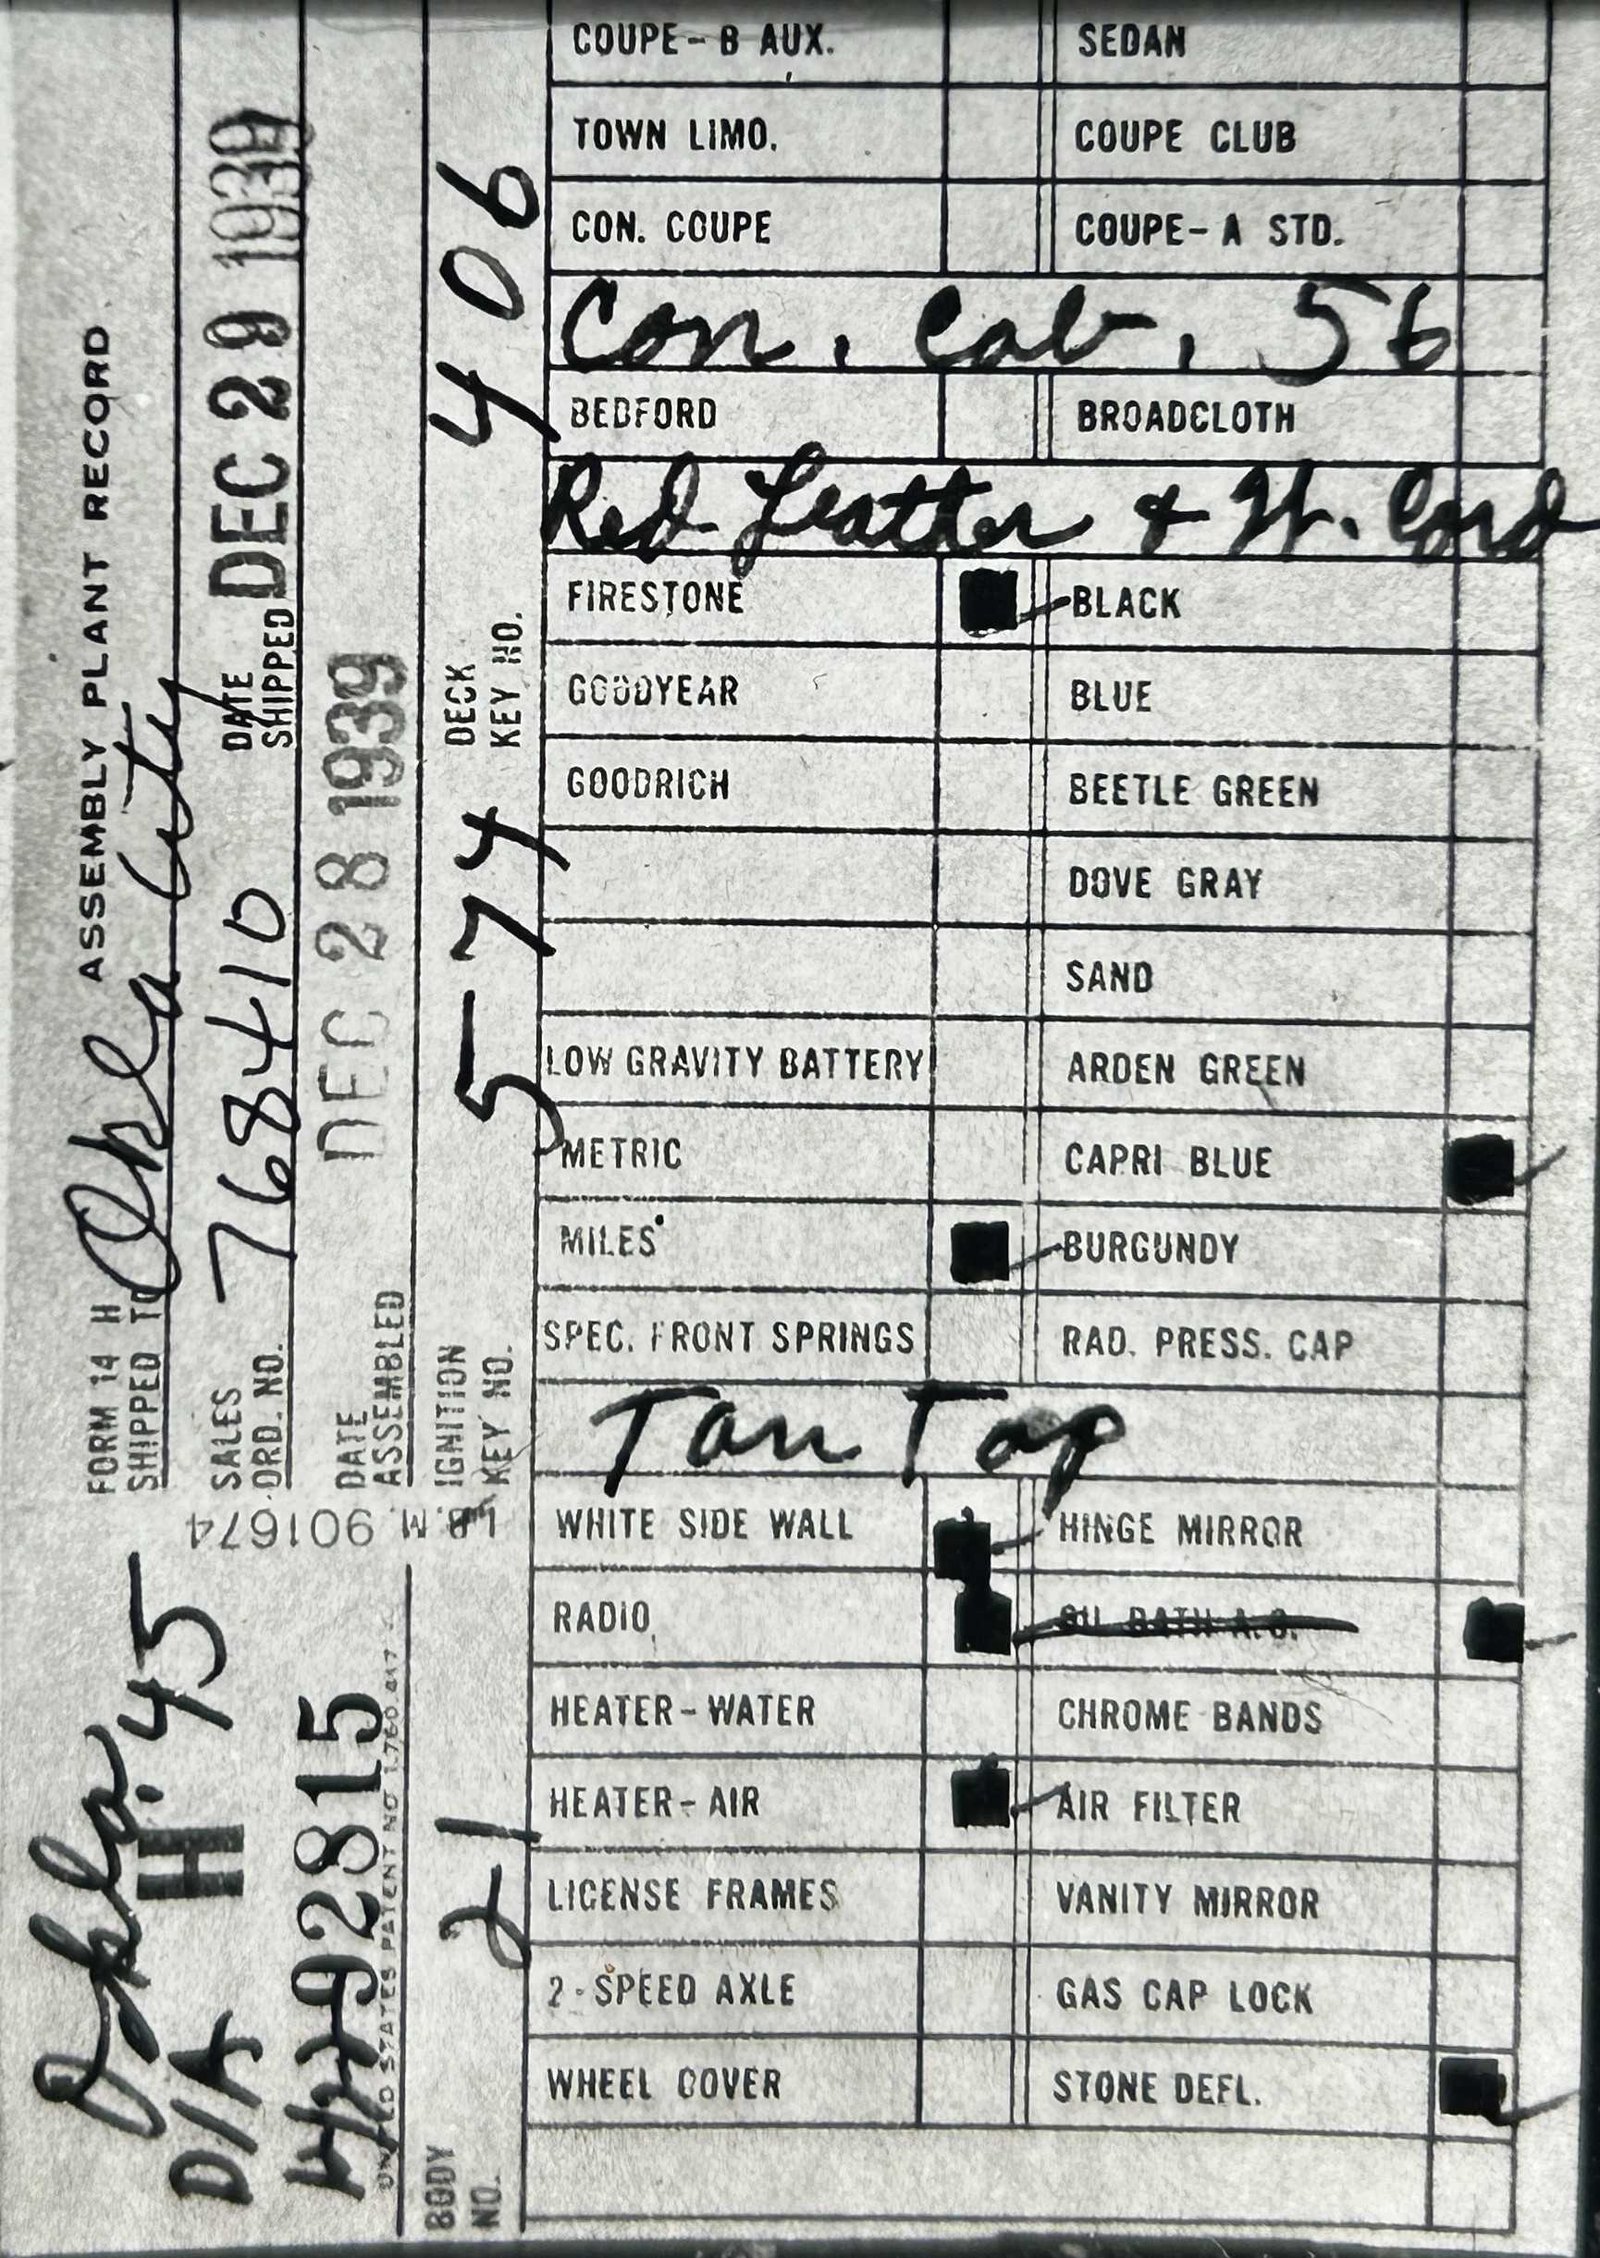 FORM 14 H ASSEMBLY PLANT RECORD
SHIPPED TO Okla City
SALES ORD. NO. 768410
DATE SHIPPED DEC 29 1939
DATE ASSEMBLED DEC 28 1939
IGNITION KEY NO. 5-74
DECK KEY NO. 406
I.B.M. 901674
Okla.
D/A H.45
H92815
UNITED STATES PATENT NO 1,760,417
BODY NO. 21
COUPE-B AUX. SEDAN
TOWN LIMO. COUPE CLUB
CON. COUPE COUPE-A STD.
Con. Cab. 56
BEDFORD BROADCLOTH
Red Leather & W. Cord
FIRESTONE BLACK
GOODYEAR BLUE
GOODRICH BEETLE GREEN
DOVE GRAY
SAND
LOW GRAVITY BATTERY ARDEN GREEN
METRIC CAPRI BLUE
MILES BURGUNDY
SPEC. FRONT SPRINGS RAD. PRESS. CAP
Tan Top
WHITE SIDE WALL HINGE MIRROR
RADIO OIL BATH A.C.
HEATER-WATER CHROME BANDS
HEATER-AIR AIR FILTER
LICENSE FRAMES VANITY MIRROR
2-SPEED AXLE GAS CAP LOCK
WHEEL COVER STONE DEFL.